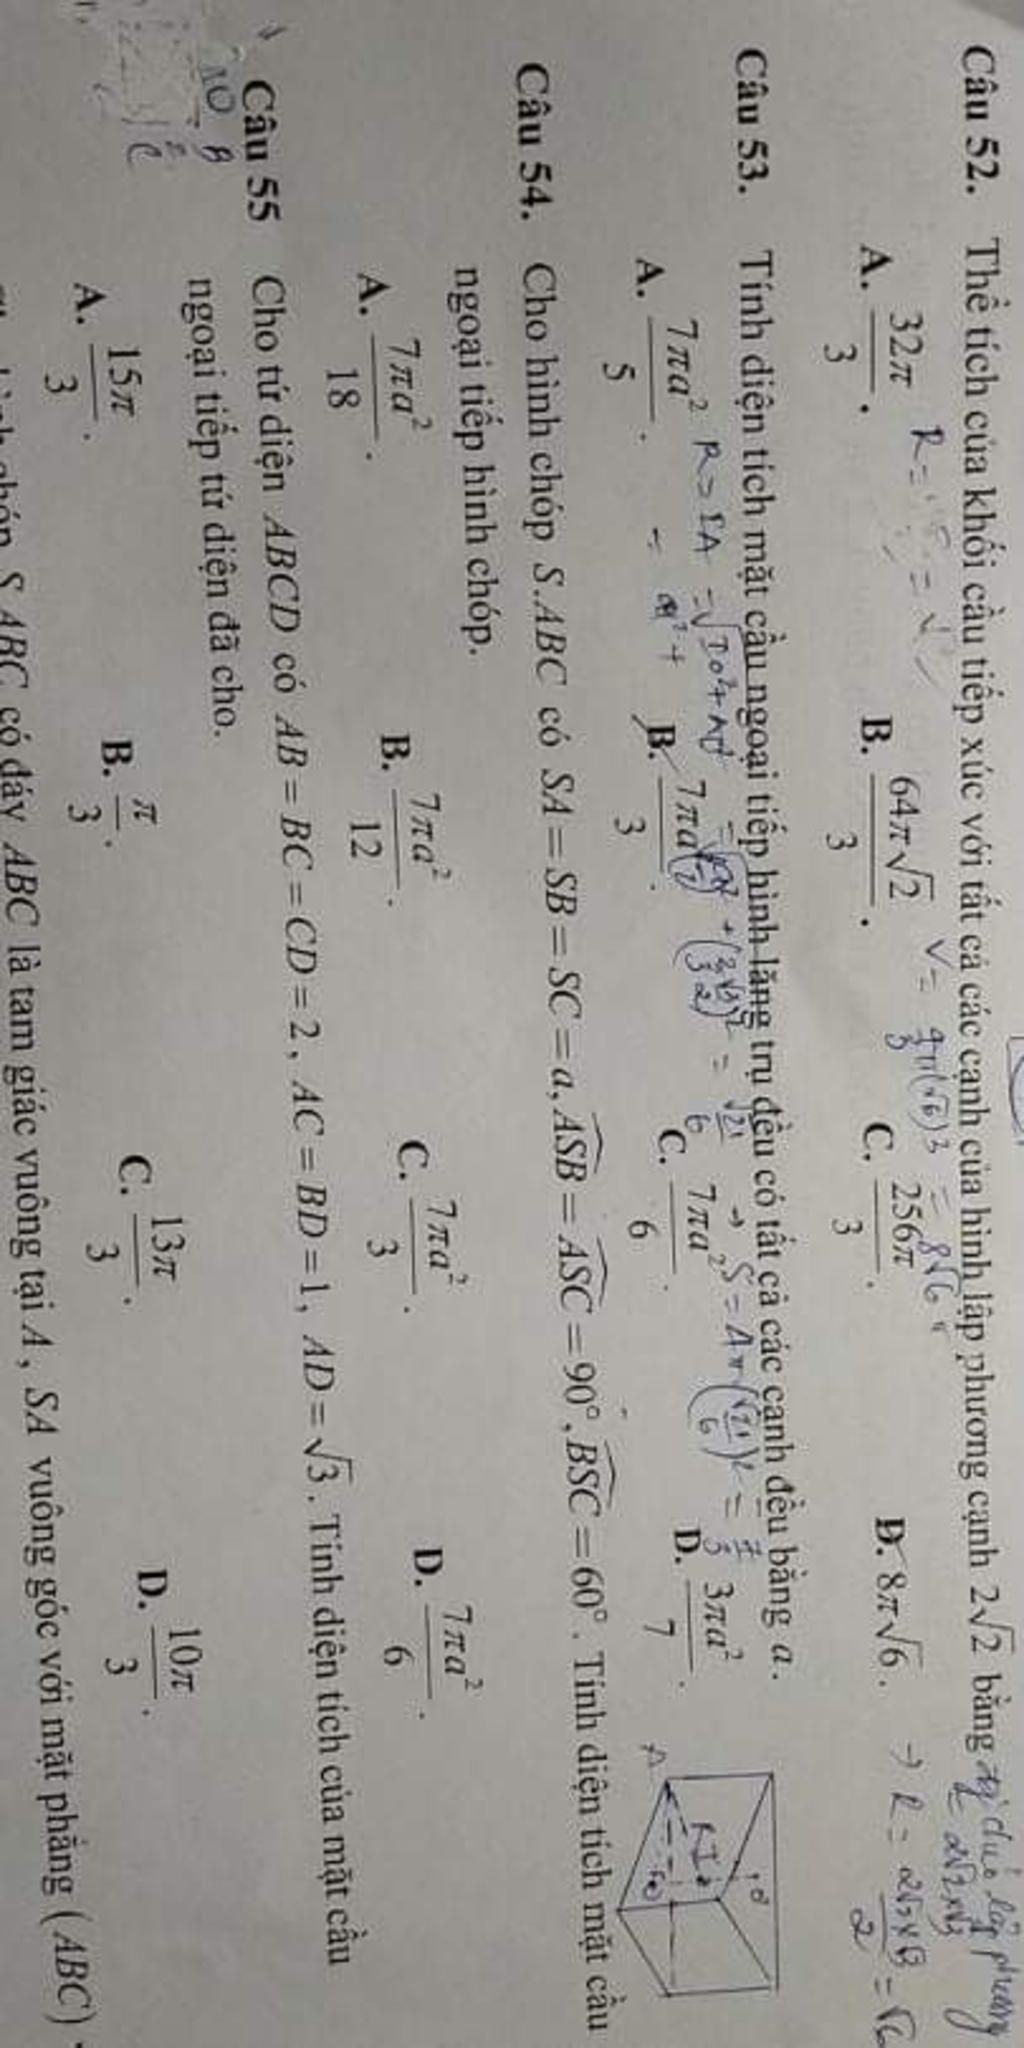 Câu 52. Thể tích của khối cầu tiếp xúc với tất cả các cạnh của hình lập phương cạnh 2√2 bằng
A. 32π/3. B. 64π√2/3. C. 256π/3. D. 8π√6.
→ R = 2√2×√3/2 = √6
V = 4/3 π(√6)³ = 8√6 π
Câu 53. Tính diện tích mặt cầu ngoại tiếp hình lăng trụ đều có tất cả các cạnh đều bằng a.
R = IA = √IO²+AO² = + (2/3 √3/2)² = √21/6 → S = 4π(√21/6)² = 7/3
A. 7πa²/5. B. 7πa²/3. C. 7πa²/6. D. 3πa²/7.
A I O O'
Câu 54. Cho hình chóp S.ABC có SA = SB = SC = a, ASB = ASC = 90°, BSC = 60°. Tính diện tích mặt cầu
ngoại tiếp hình chóp.
A. 7πa²/18. B. 7πa²/12. C. 7πa²/3. D. 7πa²/6.
Câu 55 Cho tứ diện ABCD có AB = BC = CD = 2, AC = BD = 1, AD = √3. Tính diện tích của mặt cầu
ngoại tiếp tứ diện đã cho.
A. 15π/3. B. π/3. C. 13π/3. D. 10π/3.
S.ABC có đáy ABC là tam giác vuông tại A, SA vuông góc với mặt phẳng (ABC)